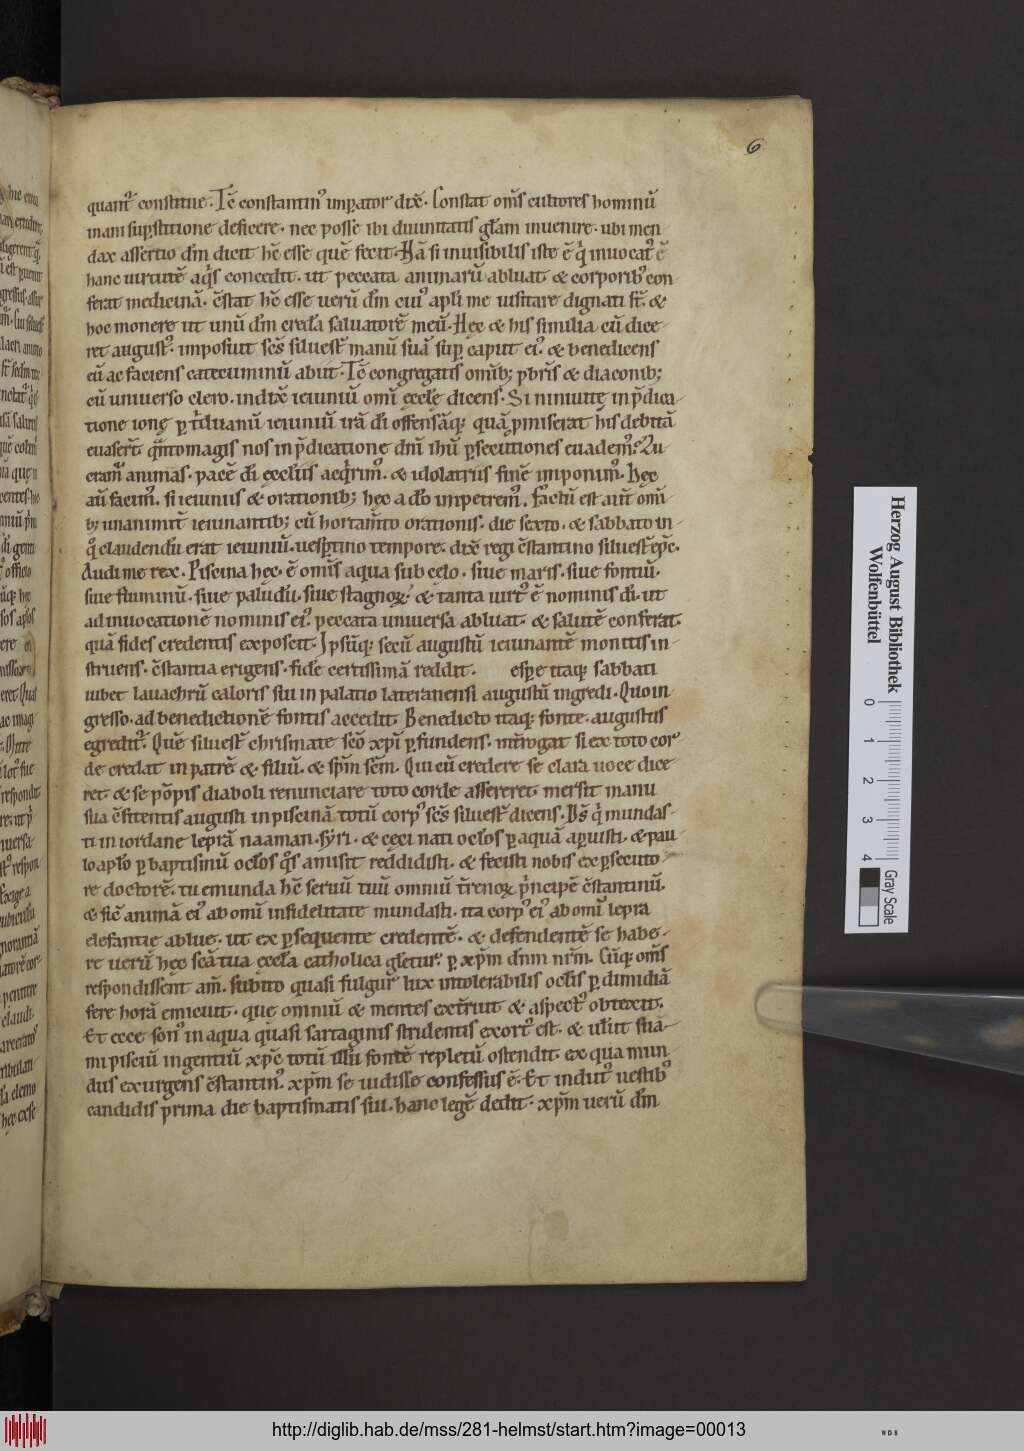 6
quant᷑ constitue. Tc̄ constantin᷒ imp̄ator dix̄. Constat om̄s cultores hominū
inani sup̄stitione deficere. nec posse ibi diuinitatis gl̄am inuenire. ubi men
dax assertio dm̄ dicit hc̄ esse quē fecit. Nā si inuisibilis iste ē q̇ inuocat᷑ c̄
hanc uirtutē aq̇s concedit. ut peccata animarū abluat & corporib᷒ con
ferat medicinā. c̄stat hc̄ esse uerū dm̄ cui᷒ apl̄i me uisitare dignati st̄. &
hoc monere ut unū dm̄ credā saluatorē meū. Hęc & his similia cū dice
ret august᷒. imposuit sc̄s siluest᷑ manū suā sup̄ caput ei᷒. & benedicens
eū ac faciens catecuminū abiit. Tc̄ congregatis omīb; pbr̄is & diaconib;
cū uniuerso clero. indix̄ ieiuniū omī ęcclę dicens. Si niniuitę in p̄dica
tione ionę p̱ t̊duanū ieiuniū irā dī offensāq; quā p̱miserat his debitā
euasert̄. q̄ntomagis nos in p̄dicatione dn̄i ih̄u p̱secutiones euadem᷒. Lu
cram᷑ animas. pacē dī ęccl̄iis acq̇rim᷒. & idolatriis finē imponim᷒. Hęc
aū facim᷒. si ieiuniis & orationib; hęc a dō impetrem᷒. Factū est aut̄ omī
b; unanimit̄ ieiunantib; cū hortam̄to orationis. die sexto. & sabbato in
q̊ claudendū erat ieiuniū. uesp̱tino tempore. dix̄ regi c̄stantino siluest᷑ ep̄c.
Audi me rex. Piscina hęc. ē omīs aqua sub cęlo. siue maris. siue fontiū.
siue fluminū. siue paludū. siue stagnoꝝ. & tanta uirt᷒ ē nominis dī. ut
ad inuocationē nominis ei᷒. peccata uniuersa abluat. & salutē conferat.
quā fides credentis exposcit. Ipsūq; secū augustū ieiunantē monitis in
struens. c̄stantia erigens. fide certissimā reddit. esp̱e itaq; sabbati
iubet lauachrū caloris sui in palatio lateranensi augustū ingredi. Quo in
gresso. ad benedictionē fontis accedit. Benedicto itaq; fonte. augustus
egredit᷑. Quē siluest᷑ chrismate scō xp̄i p̱fundens. int̄rogat si ex toto cor
de credat in patrē & filiū. & sp̄m sc̄m. Qui cū credere se clara uoce dice
ret. & se pōpis diaboli renunciare toto corde assereret. mersit manu
sua c̄fitentis augusti in piscinā totū corp᷒ sc̄s siluest᷑ dicens. Ds̄ q̇ mundas
ti in iordane leprā naaman. syri. & cęci nati oclos p̱ aquā ap̱uisti. & pau
lo aplo p̱ baptismū oclos q̊s amisit reddidisti. & fecisti nobis ex p̱secuto
re doctorē. tu emunda hc̄ seruū tuū omniū t̄renoꝝ p̊ncipē c̄stantinū.
& sic̄ animā ei᷒ ab omī infidelitate mundasti. ita corp᷒ ei᷒ ab omī lepra
elefantie ablue. ut ex p̱sequente credentē. & defendentē se habe
re uerū hęc scā tua ęccl̄a catholica glet̄ur. p̱ xp̄m dn̄m nrm̄. Cūq; om̄s
respondissent am̄. subito quasi fulgur᷑ lux intolerabilis oclis p̱ dimidiā
fere horā emicuit. que omniū & mentes ext̄ruit & aspect᷒ obtexit.
Et ecce son᷒ in aqua quasi sartaginis stridentis exort᷒ est. & ueluit suā
mi pisciū ingentiū xp̄c totū illū fontē repletū ostendit. ex qua mun
dus exurgens c̄stantin᷒. xp̄m se uidisse confessus ē. Et indut᷒ uestib᷒
candidis prima die baptismatis sui. hanc legē dedit. xp̄m uerū dm̄
Herzog August Bibliothek
Wolfenbüttel
0 1 2 3 4
Gray Scale
http://diglib.hab.de/mss/281-helmst/start.htm?image=00013